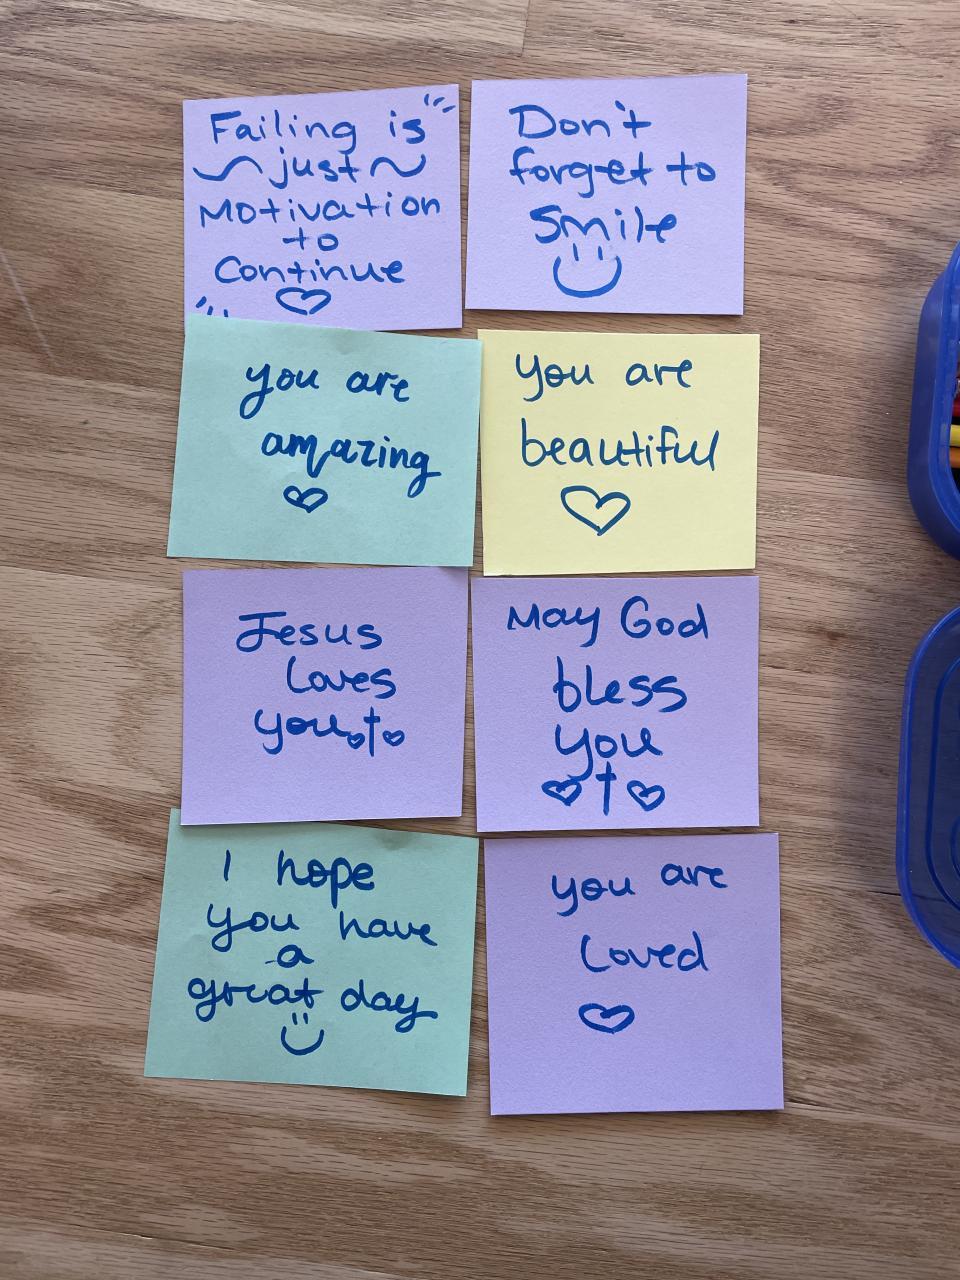 Failing is
just
Motivation
to
Continue
Don't
forget to
smile
you are
amazing
you are
beautiful
Jesus
loves
you
May God
bless
you
I hope
you have
a
great day
you are
loved